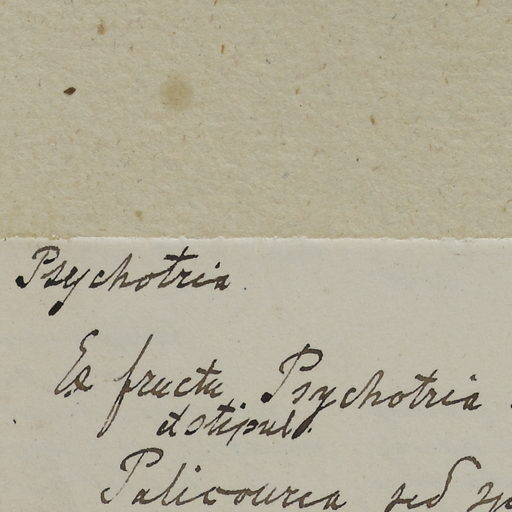 Psychotria.
Ex fructu Psychotria
et stipul.
Palicourea sed